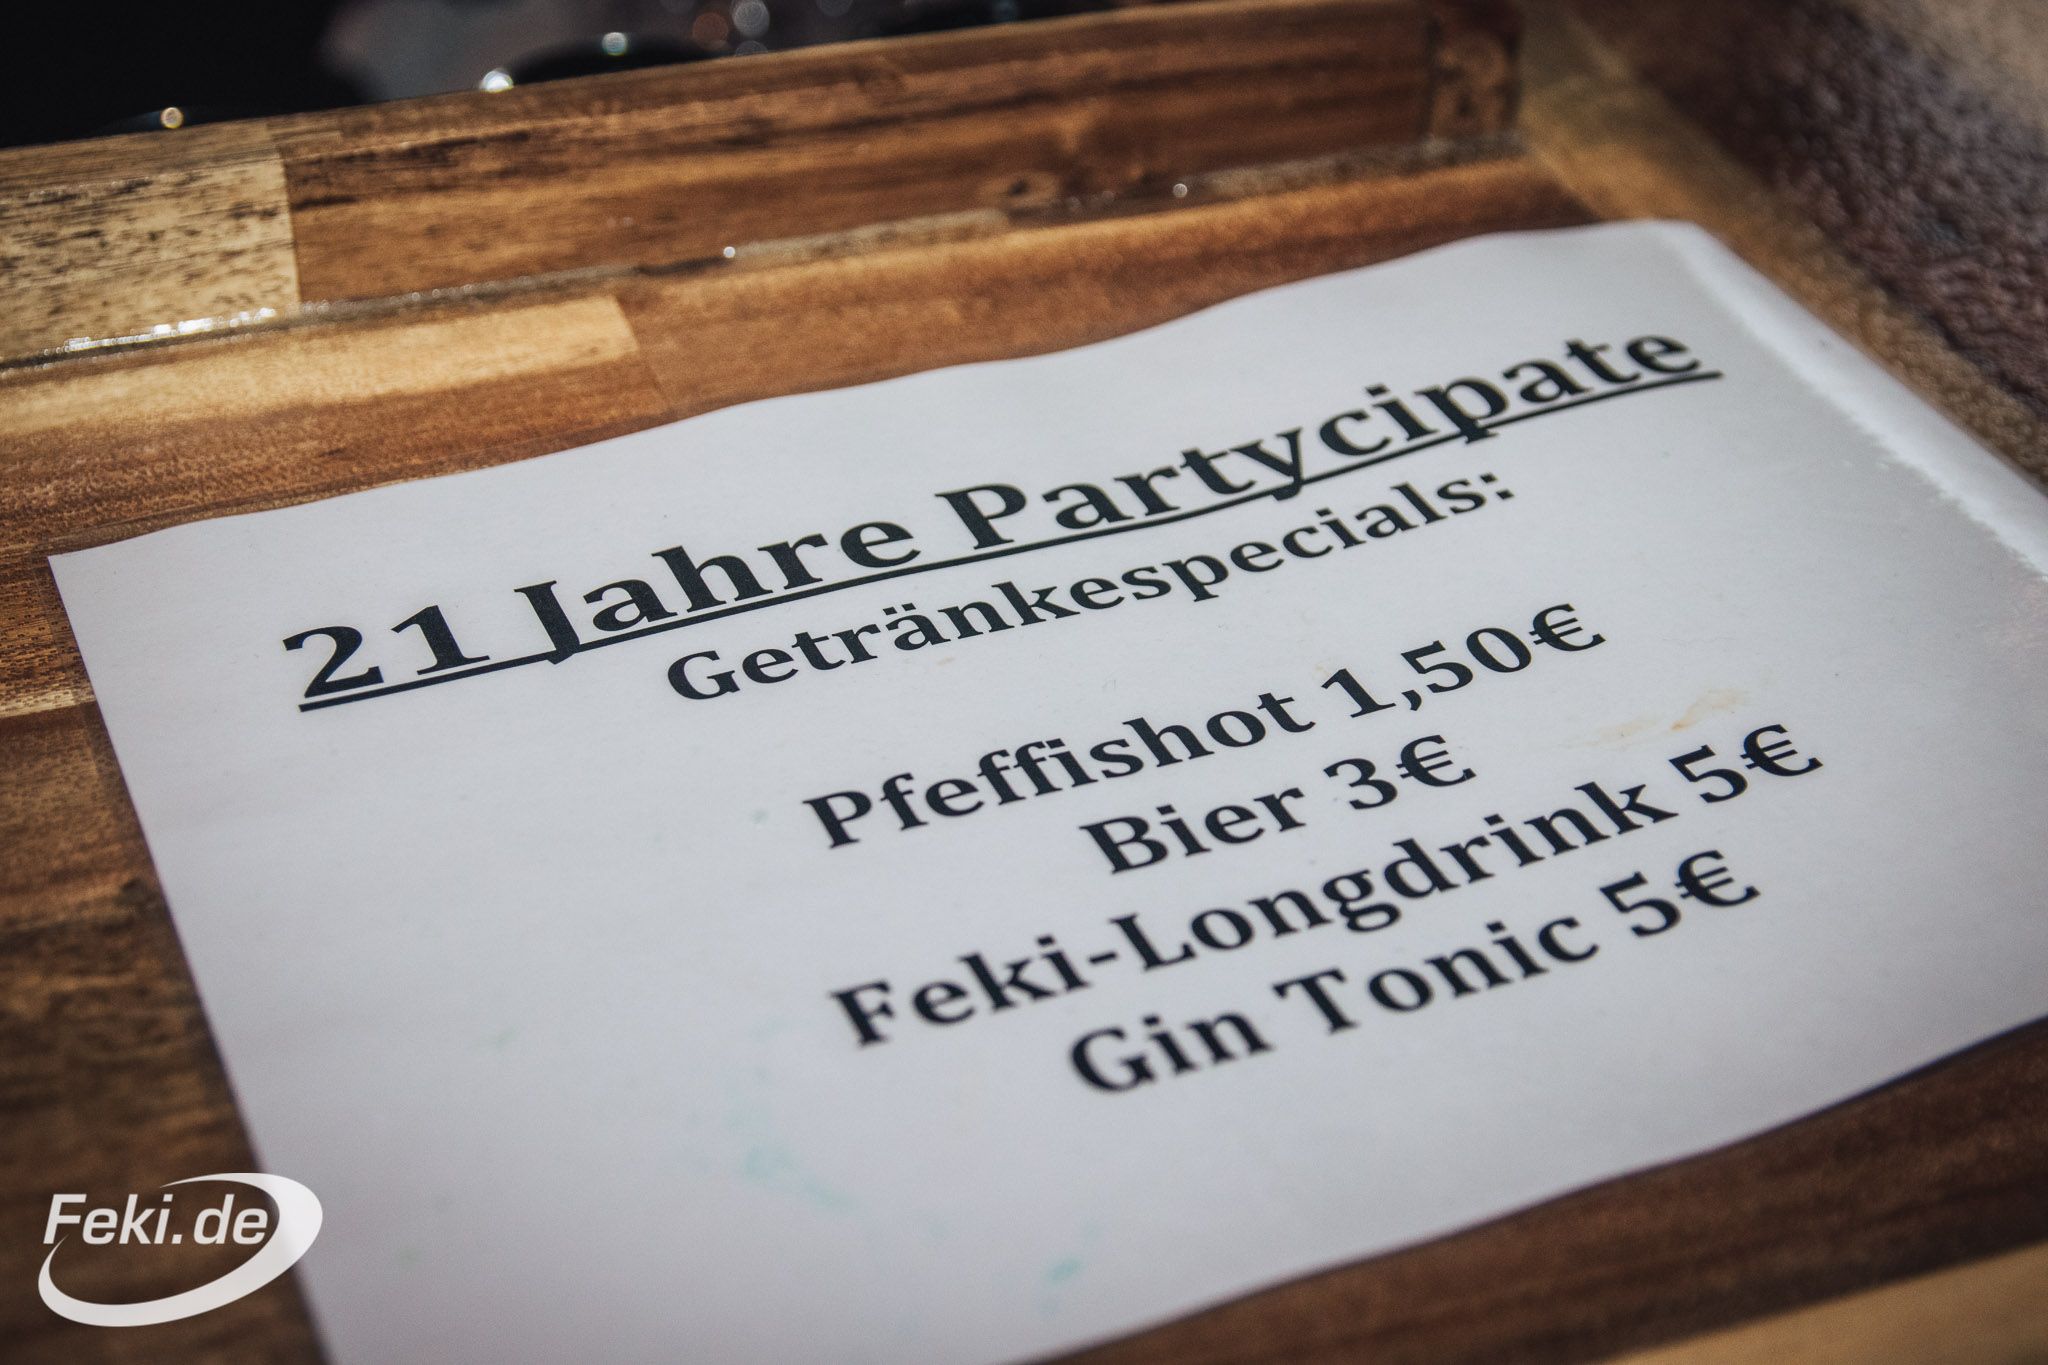 21 Jahre Partycipate
Getränkespecials:
Pfeffishot 1,50€
Bier 3€
Feki-Longdrink 5€
Gin Tonic 5€
Feki.de